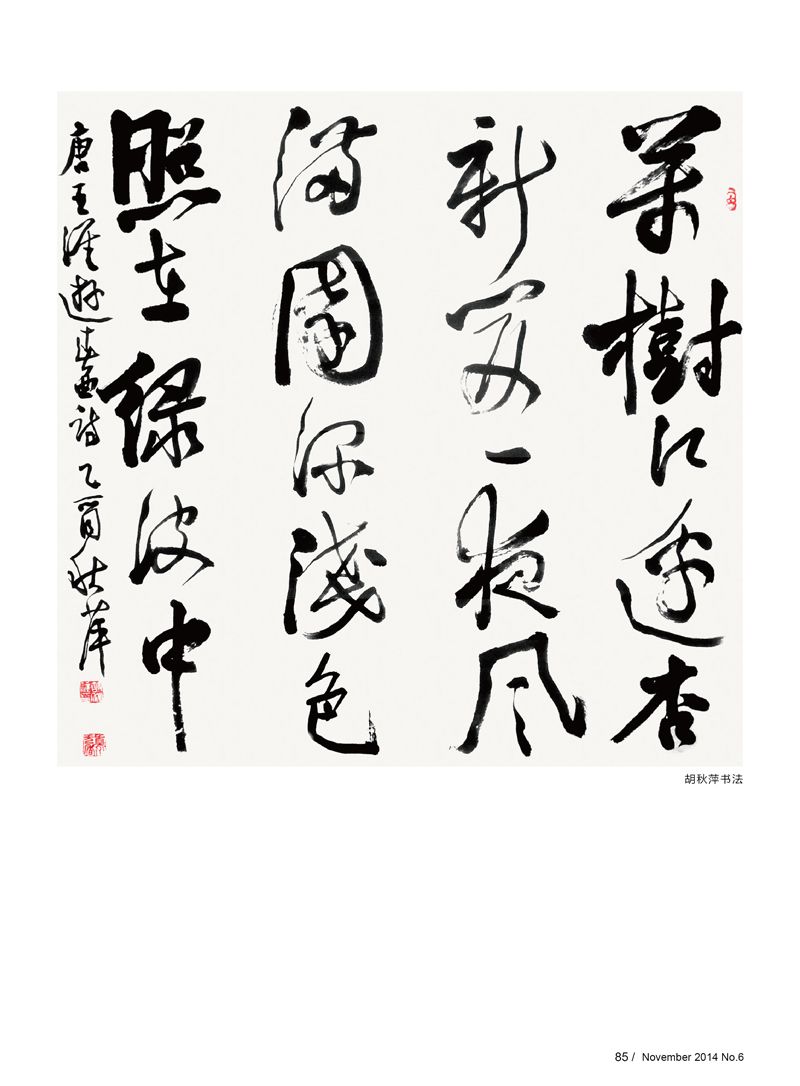 萬樹江邊杏
新開一夜風
滿園深淺色
照在緑波中
唐王涯遊春曲詩乙酉秋萍
胡秋萍书法
85 / November 2014 No.6